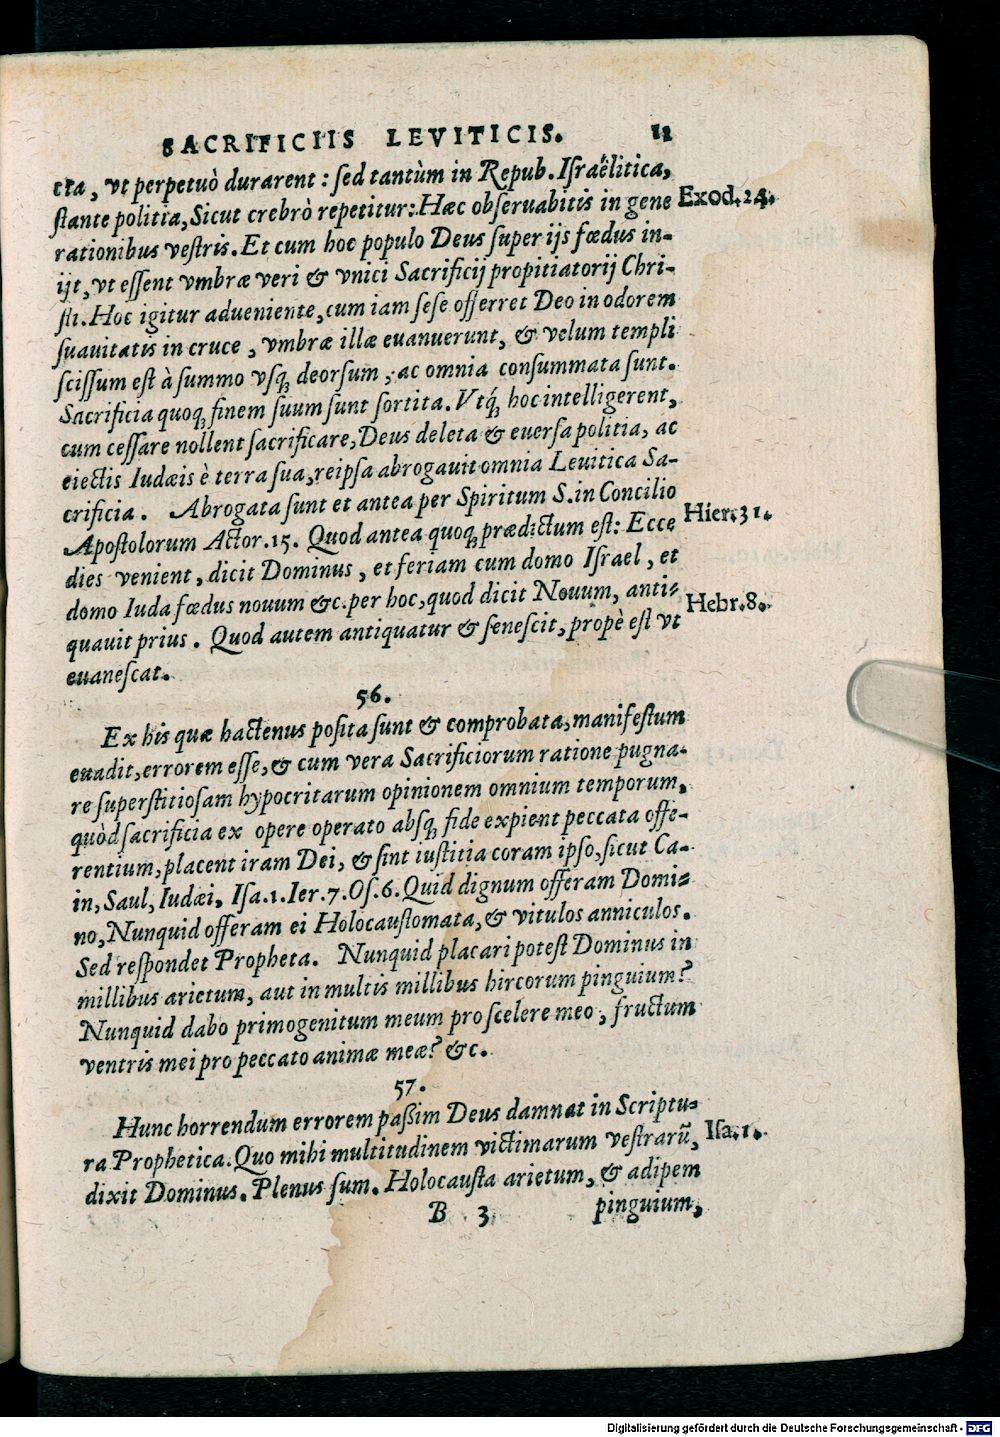 SACRIFICIIS LEVITICIS. 11
cta, vt perpetuò durarent: sed tantùm in Repub. Israëlitica,
stante politia, Sicut crebrò repetitur: Hæc obseruabitis in gene Exod.24.
rationibus vestris. Et cum hoc populo Deus super ijs fœdus in-
ijt, vt essent vmbræ veri & vnici Sacrificij propitiatorij Chri-
sti. Hoc igitur adueniente, cum iam sese offerret Deo in odorem
suauitatis in cruce, vmbræ illæ euanuerunt, & velum templi
scissum est à summo vsq́; deorsum, ac omnia consummata sunt.
Sacrificia quoq; finem suum sunt sortita. Vtq́; hoc intelligerent,
cum cessare nollent sacrificare, Deus deleta & euersa politia, ac
eiectis Iudæis è terra sua, reipsa abrogauit omnia Leuitica Sa-
crificia. Abrogata sunt et antea per Spiritum S. in Concilio
Apostolorum Actor.15. Quod antea quoq; prædictum est: Ecce Hier.31.
dies venient, dicit Dominus, et feriam cum domo Israel, et
domo Iuda fœdus nouum &c. per hoc, quod dicit Nouum, anti- Hebr.8.
quauit prius. Quod autem antiquatur & senescit, propè est vt
euanescat.
56.
Ex his quæ hactenus posita sunt & comprobata, manifestum
euadit, errorem esse, & cum vera Sacrificiorum ratione pugna-
re superstitiosam hypocritarum opinionem omnium temporum,
quòd sacrificia ex opere operato absq; fide expient peccata offe-
rentium, placent iram Dei, & sint iustitia coram ipso, sicut Ca-
in, Saul, Iudæi, Isa.1. Ier.7. Os.6. Quid dignum offeram Domi-
no, Nunquid offeram ei Holocaustomata, & vitulos anniculos.
Sed respondet Propheta. Nunquid placari potest Dominus in
millibus arietum, aut in multis millibus hircorum pinguium?
Nunquid dabo primogenitum meum pro scelere meo, fructum
ventris mei pro peccato animæ meæ? &c.
57.
Hunc horrendum errorem paßim Deus damnat in Scriptu-
ra Prophetica. Quo mihi multitudinem victimarum vestrarū, Isa.1.
dixit Dominus. Plenus sum. Holocausta arietum, & adipem
B 3 pinguium,
Digitalisierung gefördert durch die Deutsche Forschungsgemeinschaft - DFG